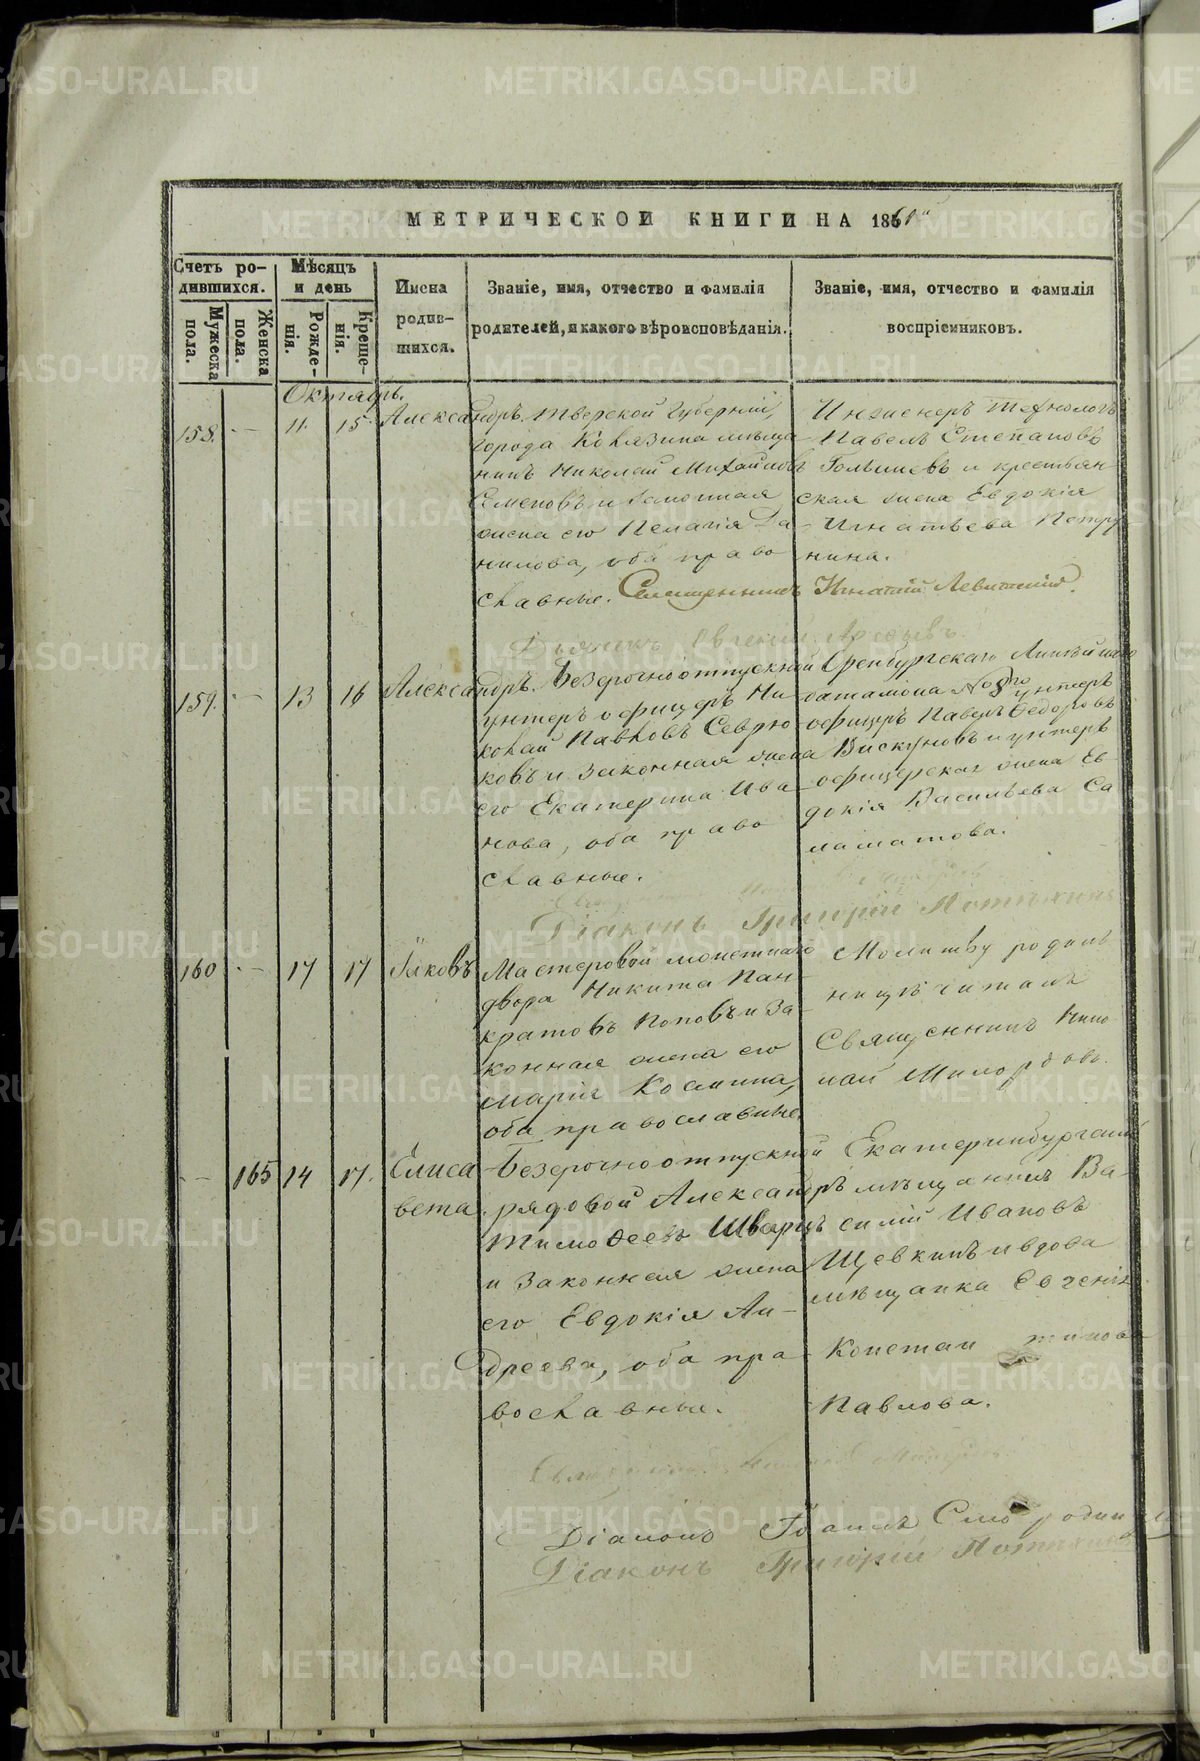 МЕТРИЧЕСКОЙ КНИГИ НА 1861й
Счетъ ро-
дившихся.
Мужеска
пола.
Женска
пола.
Мѣсяцъ
и день
Рожде-
нія.
Креще-
нія.
Имена
родив-
шихся.
Званіе, имя, отчество и фамилія
родителей, и какого вѣроисповѣданія.
Званіе, имя, отчество и фамилія
воспріемниковъ.
Октябрь.
158. 11. 15. Александръ.
Тверской Губерніи,
города Колязина мѣща-
нинъ Николай Михайловъ
Семеновъ и законная
жена его Пелагія Да-
нилова, оба право
славные.
Инженеръ технологъ
Павелъ Степановъ
Голышевъ и крестьян
ская жена Евдокія
Игнатьева Петру
нина.
Священникъ Игнатій Левитскій.
Дьячекъ Евгеній
159. 13 16 Александръ.
Безсрочноотпускной
унтеръ офицеръ Ни-
колай Павловъ Севрю-
ковъ и законная жена
его Екатерина Ива-
нова, оба право
славные.
Оренбургскаго Линѣйнаго
баталіона № 8го унтеръ
офицеръ Павелъ Ѳедоровъ
Вискуновъ и унтеръ
офицерская жена Ев-
докія Васильева Са
ламатова.
Діаконъ Григорій
160 17 17 Іяковъ
Мастеровой монетнаго
двора Никита Пан-
кратовъ Поповъ и за-
конная жена его
Марія Косьмина,
оба православные.
Молитву родиль
ницѣ читалъ
Священникъ Нико-
лай
165 14 17. Елиса
вета.
Безсрочноотпускной
рядовой Александръ
Тимоѳеевъ Шварцъ
и законная жена
его Евдокія Ан-
дреева, оба пра-
вославные.
Екатеринбургскій
мѣщанинъ Ва-
силій Ивановъ
Щевкинъ и вдова
мѣщанка Евгенія
Константинова
Павлова.
Діаконъ Іоаннъ Смородин
Діаконъ Григорій
METRIKI.GASO-URAL.RU